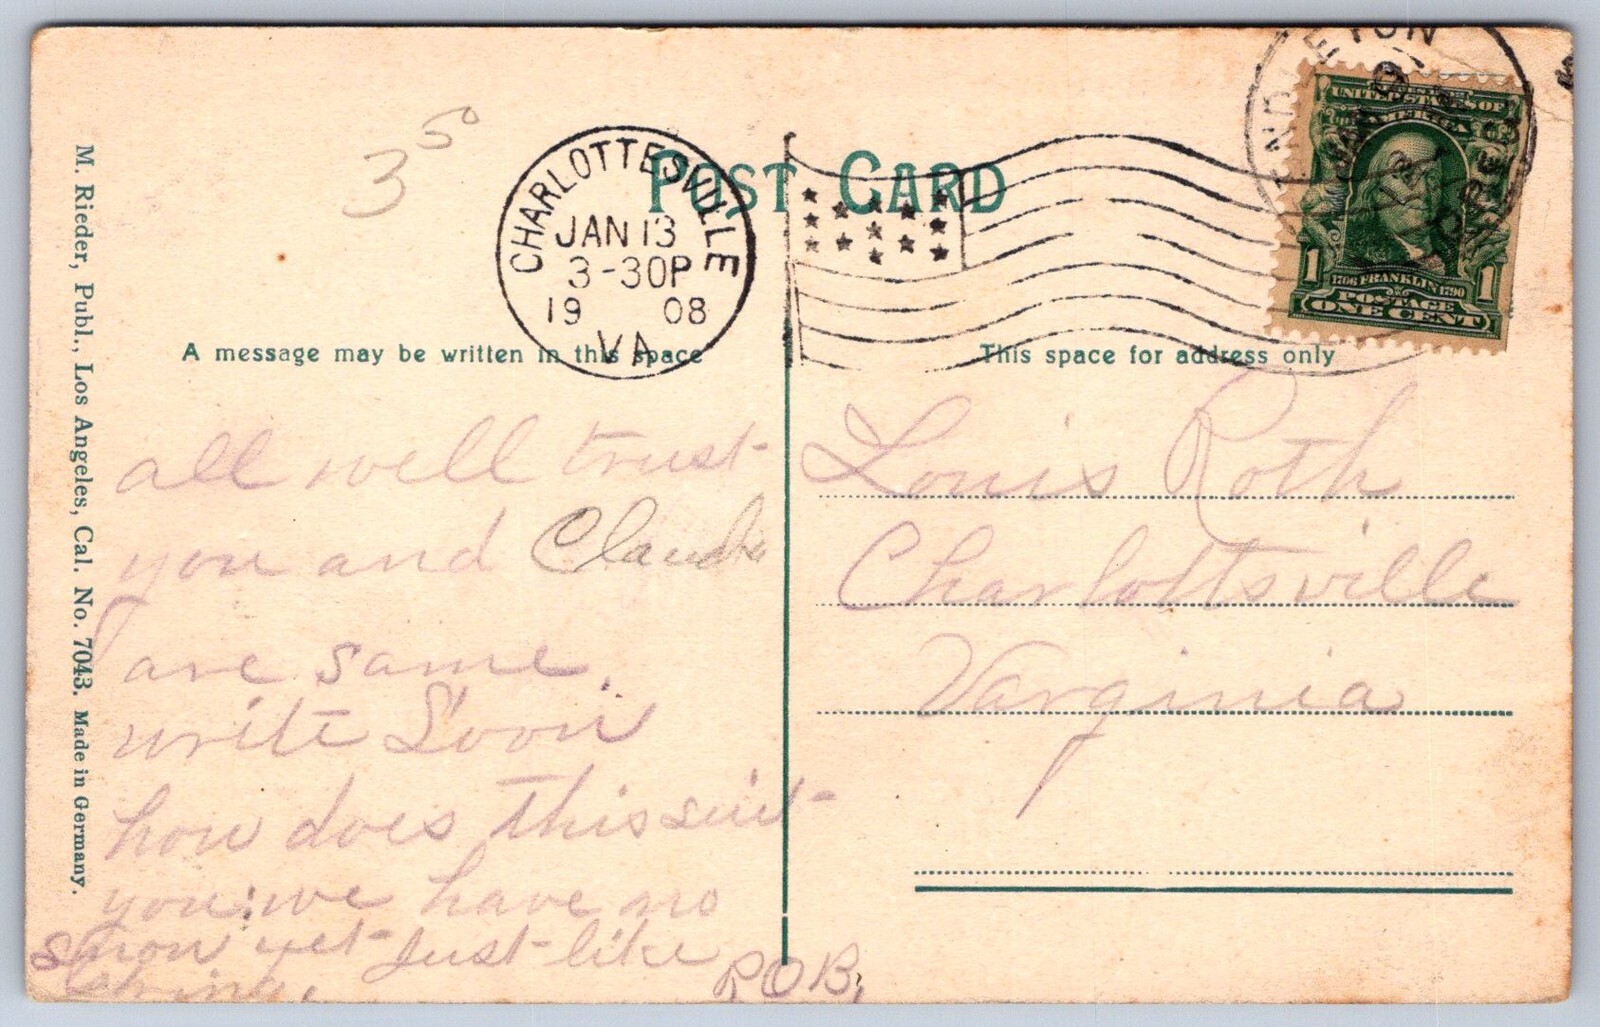 3 50
CHARLOTTESVILLE
JAN 13
3-30P
19 08
VA
POST CARD
UNITED STATES OF
AMERICA
1 1706 FRANKLIN 1790 1
POSTAGE
ONE CENT
A message may be written in this space
This space for address only
M. Rieder, Publ., Los Angeles, Cal. No. 7043. Made in Germany.
all well trust
you and
are same.
write Soon
how does this suit
you: we have no
snow yet Just like
Spring.
R O B.
Louis Roth
Charlottsville
Varginia